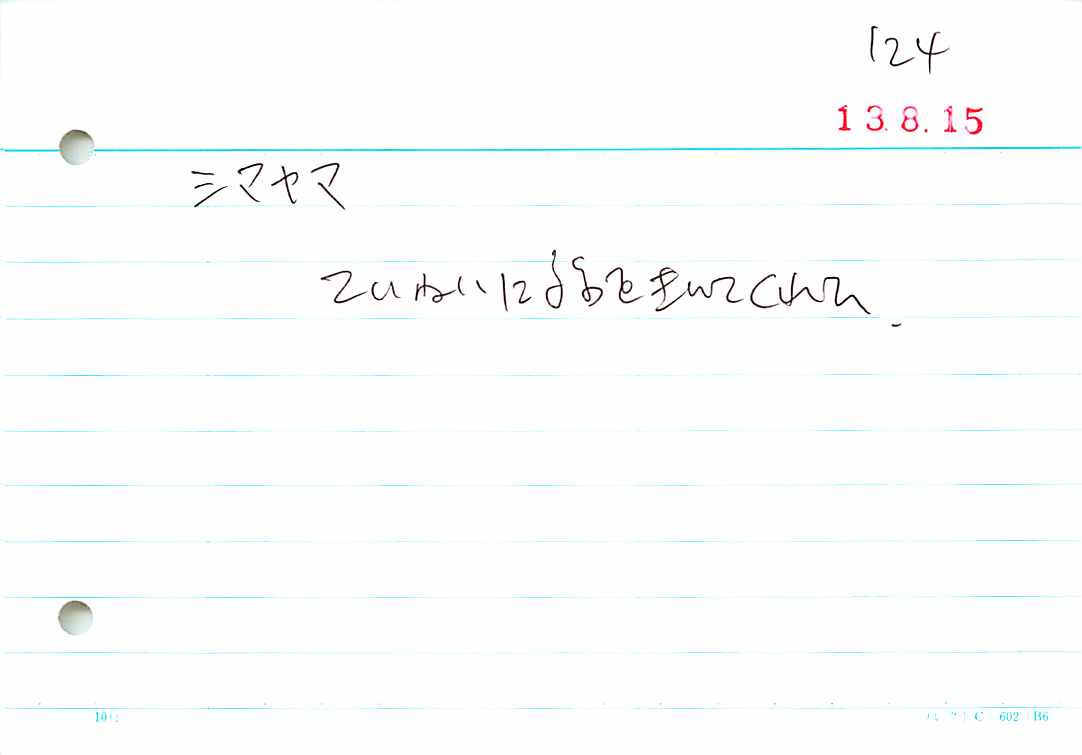 124
13.8.15
シマヤマ
ていねいに話をきいてくれた.
C - 602 B6